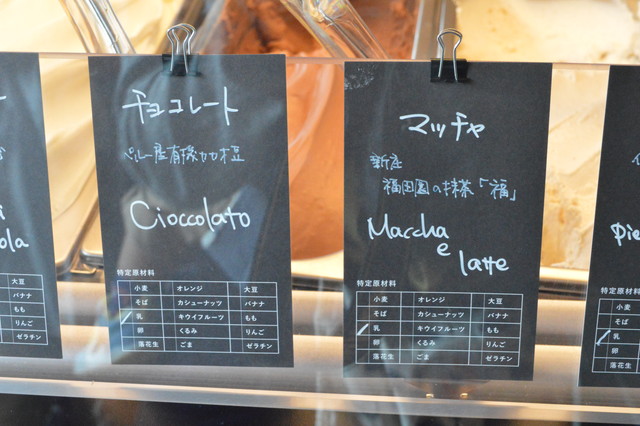 チョコレート
ペルー産有機カカオ豆
Cioccolato
特定原材料
小麦 オレンジ 大豆
そば カシューナッツ バナナ
乳 キウイフルーツ もも
卵 くるみ りんご
落花生 ごま ゼラチン
マッチャ
新座
福田園の抹茶「福」
Maccha
e
latte
特定原材料
小麦 オレンジ 大豆
そば カシューナッツ バナナ
乳 キウイフルーツ もも
卵 くるみ りんご
落花生 ごま ゼラチン
大豆
バナナ
もも
りんご
ゼラチン
特定原材料
小麦
そば
乳
卵
落花生